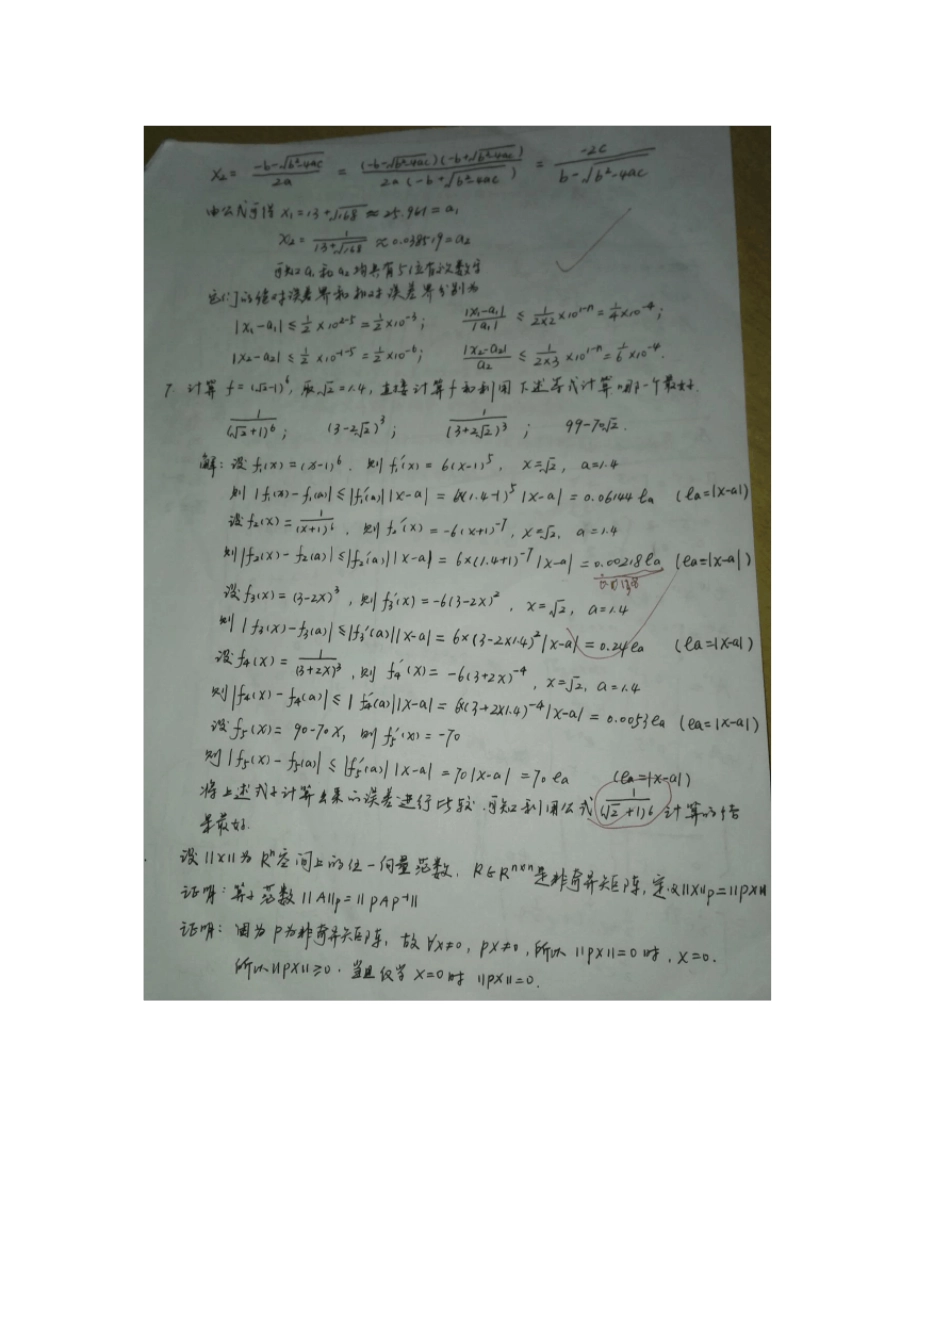 x₂ = (-b-√(b²-4ac))/(2a) = ((-b-√(b²-4ac))(-b+√(b²-4ac)))/(2a(-b+√(b²-4ac))) = (-2c)/(b-√(b²-4ac))
由公式可得 x₁=13+√168 ≈25.961=a₁
x₂= 1/(13+√168) ≈0.038519=a₂
可知a₁和a₂均具有5位有效数字
它们的绝对误差界和相对误差界分别为
|x₁-a₁| ≤ 1/2 ×10²⁻⁵ = 1/2 ×10⁻³; |x₁-a₁|/|a₁| ≤ 1/(2×2) ×10¹⁻ⁿ = 1/4 ×10⁻⁴;
|x₂-a₂| ≤ 1/2 ×10⁻¹⁻⁵ = 1/2 ×10⁻⁶; |x₂-a₂|/a₂ ≤ 1/(2×3) ×10¹⁻ⁿ = 1/6 ×10⁻⁴.
7. 计算 f=(√2-1)⁶, 取√2=1.4, 直接计算f和利用下述等式计算.哪一个最好.
1/(√2+1)⁶; (3-2√2)³; 1/(3+2√2)³; 99-70√2.
解: 设 f₁(x)=(x-1)⁶. 则 f₁′(x)=6(x-1)⁵, x=√2, a=1.4
则 |f₁(x)-f₁(a)| ≤|f₁′(a)||x-a| = 6×(1.4-1)⁵|x-a| = 0.06144 ea (ea=|x-a|)
设 f₂(x)= 1/(x+1)⁶, 则 f₂′(x)=-6(x+1)⁻⁷, x=√2, a=1.4
则|f₂(x)-f₂(a)| ≤|f₂′(a)||x-a| = 6×(1.4+1)⁻⁷|x-a| = 0.00218ea (ea=|x-a|)
设 f₃(x)=(3-2x)³, 则 f₃′(x)=-6(3-2x)², x=√2, a=1.4
则|f₃(x)-f₃(a)| ≤|f₃′(a)||x-a| = 6×(3-2×1.4)²|x-a| = 0.24ea (ea=|x-a|)
设 f₄(x)= 1/(3+2x)³, 则 f₄′(x)=-6(3+2x)⁻⁴, x=√2, a=1.4
则|f₄(x)-f₄(a)| ≤|f₄′(a)||x-a| = 6×(3+2×1.4)⁻⁴|x-a| = 0.0053ea (ea=|x-a|)
设 f₅(x)= 90-70x, 则 f₅′(x)=-70
则|f₅(x)-f₅(a)| ≤ |f₅′(a)||x-a| = 70|x-a| = 70 ea (ea=|x-a|)
将上述式子计算出来的误差进行比较.可知利用公式 1/(√2+1)⁶ 计算的结
果最好.
设||x||为Rⁿ空间上的任一向量范数, P∈Rⁿˣⁿ是非奇异矩阵, 定义||x||p=||Px||
证明: 算子范数||A||p=||PAP⁻¹||
证明: 因为P为非奇异矩阵, 故∀x≠0, Px≠0, 所以||Px||=0时, x=0.
所以||Px||≥0. 当且仅当x=0时||Px||=0.